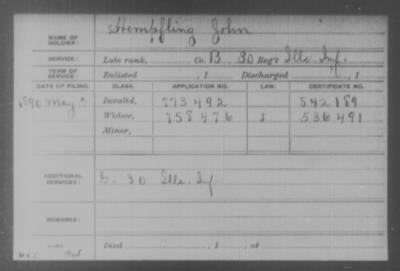 Hempfling John
NAME OF SOLDIER:
SERVICE: Late rank, Co. B, 30 Reg't Ills. Inf.
TERM OF SERVICE: Enlisted , 1 Discharged , 1
DATE OF FILING. CLASS. APPLICATION NO. LAW. CERTIFICATE NO.
1890 May Invalid, 773492 542189
Widow, 758476 J 536491
Minor,
ADDITIONAL SERVICES: G. 30 Ills. Inf
REMARKS:
Died , 1 , at